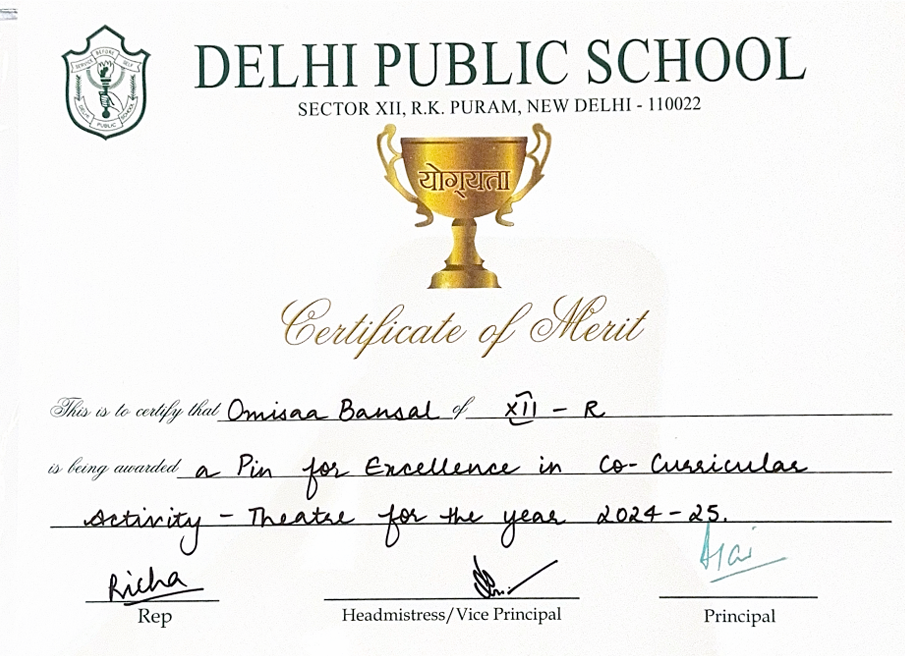 SERVICE BEFORE SELF
DELHI PUBLIC SCHOOL
DELHI PUBLIC SCHOOL
SECTOR XII, R.K. PURAM, NEW DELHI - 110022
योग्यता
Certificate of Merit
This is to certify that Omisaa Bansal of XII - R
is being awarded a Pin for Excellence in Co-Curricular
Activity - Theatre for the year 2024-25.
Richa
Rep
Headmistress/Vice Principal
Principal